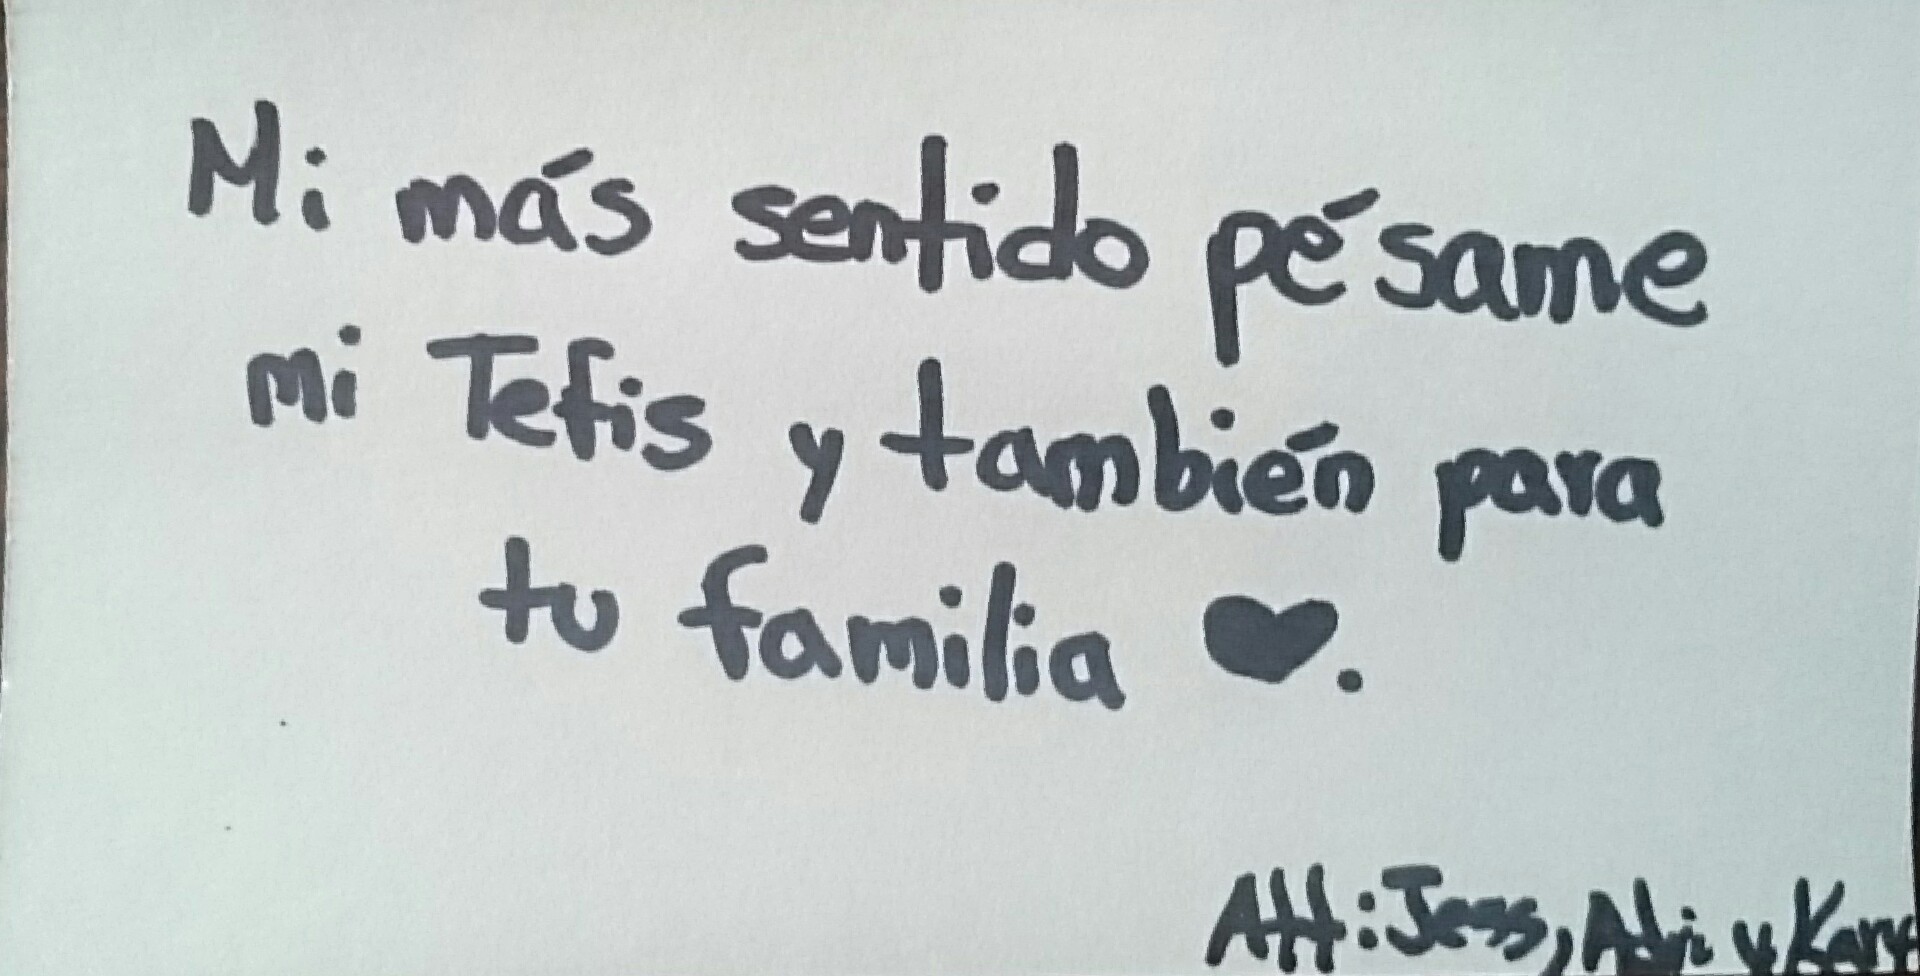 Mi más sentido pésame
mi Tefis y también para
tu familia ♥.
Att: Jess, Adri y